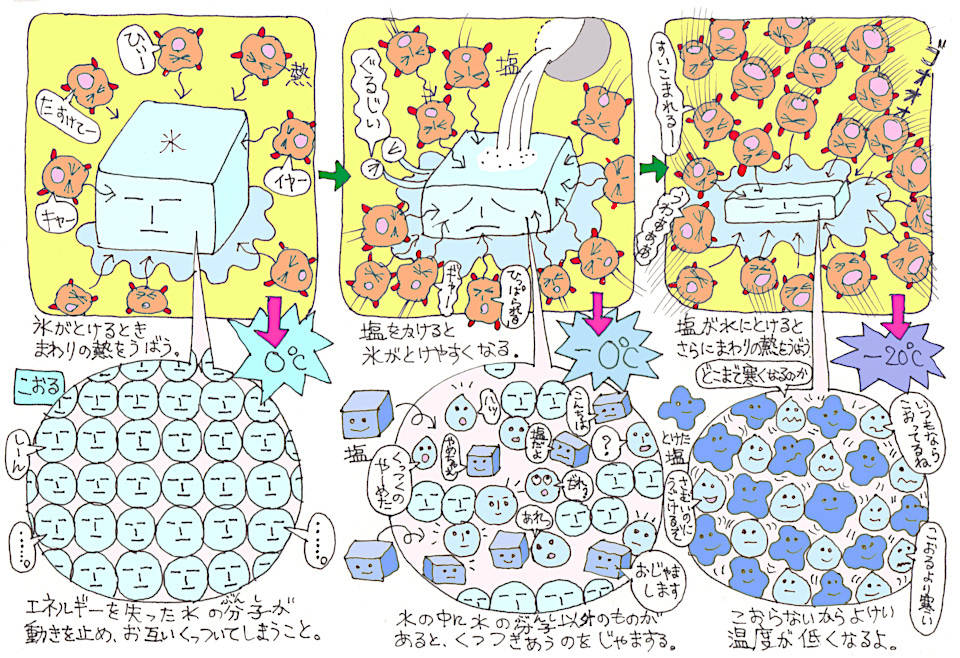 ひぃー
たすけてー
熱
氷
キャー
イヤー
氷がとけるとき
まわりの熱をうばう。
0℃
こおる
しーん
……。
……。
エネルギーを失った水の分子が
ぶんし
動きを止め、お互いくっついてしまうこと。
塩
ぐるじい
ギャー
ひっぱられる
塩をかけると
氷がとけやすくなる。
-0℃
塩
ハッ
こんちは
塩だよ
？
やめちゃえ
くっつくの
やーめた
だれ?
あれっ
おじゃま
します
水の中に水の分子以外のものが
ぶんし
あると、くっつきあうのをじゃまする。
すいこまれるー
うわぁぁぁ
塩が水にとけると
さらにまわりの熱をうばう
-20℃
どこまで寒くなるのか
いつもなら
こおってるね
とけた
塩
さむいのに
うごけるぞ
こおるより寒い
こおらないからよけい
温度が低くなるよ。